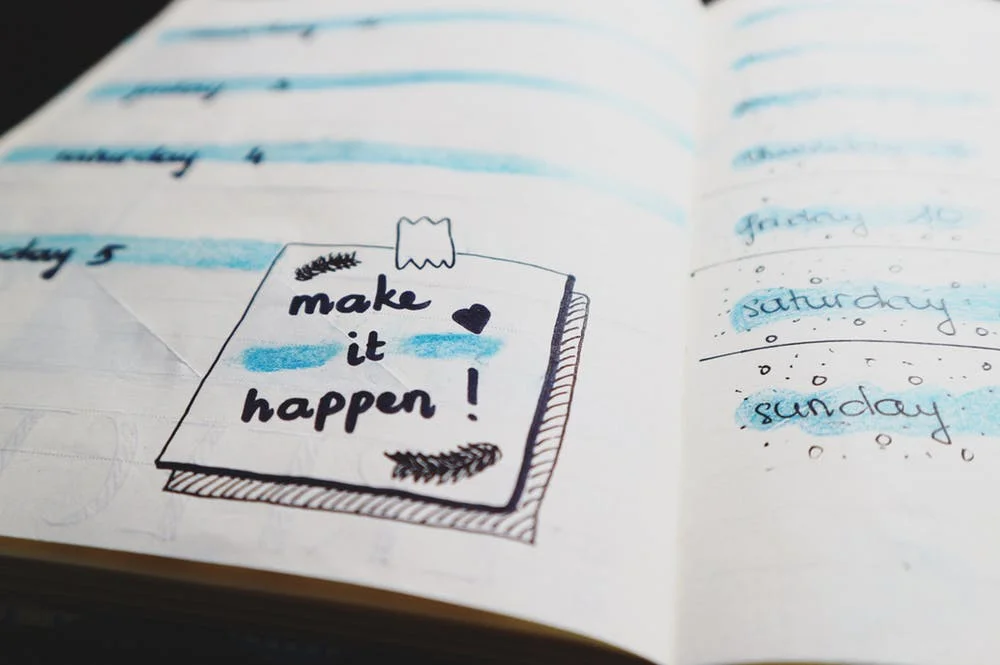 friday
saturday 4
day 5
make
it
happen!
friday 10
saturday
sunday